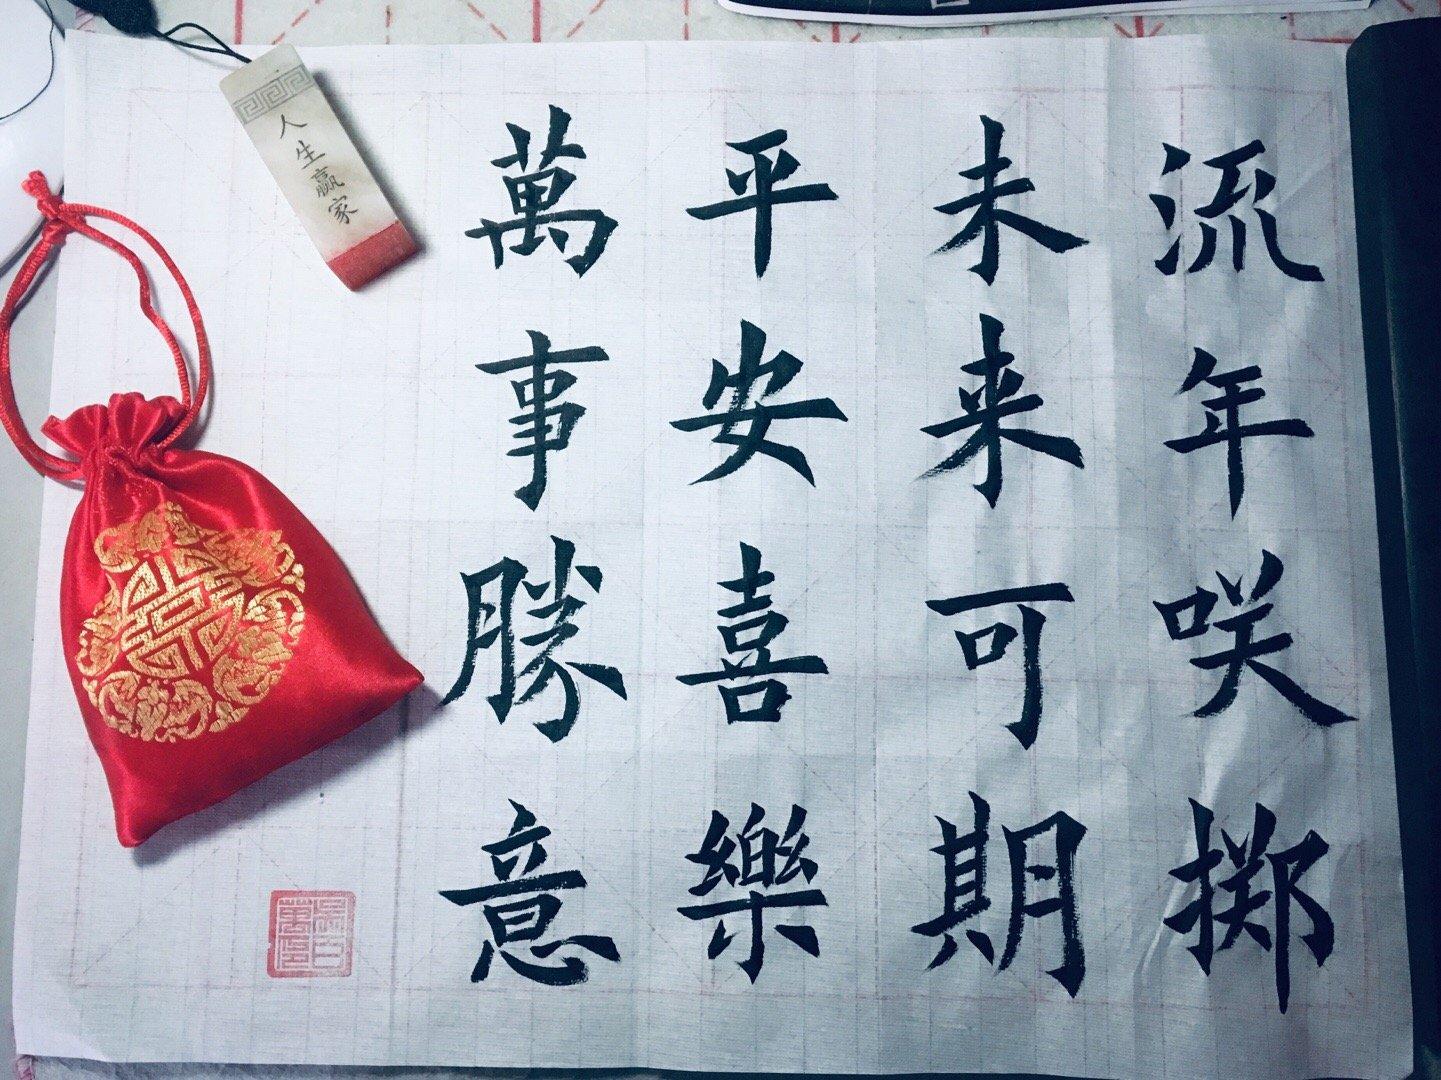 流年咲掷
未来可期
平安喜樂
萬事勝意
人生赢家